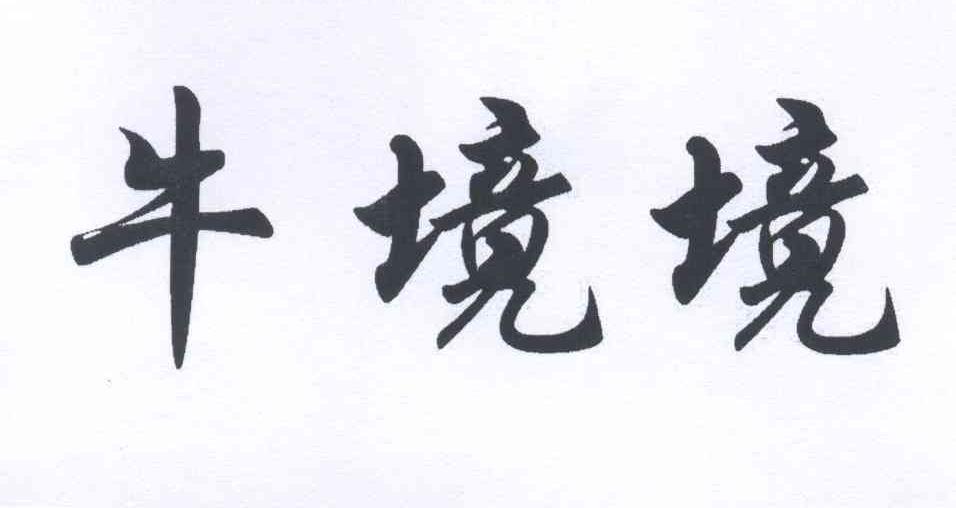 牛境境